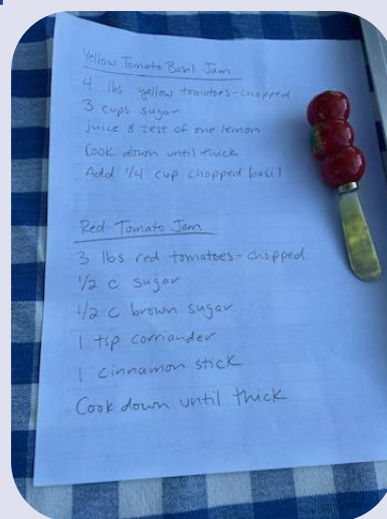 Yellow Tomato Basil Jam
4 lbs yellow tomatoes-chopped
3 cups sugar
juice & zest of one lemon
Cook down until thick
Add 1/4 cup chopped basil
Red Tomato Jam
3 lbs red tomatoes-chopped
1/2 c sugar
1/2 c brown sugar
1 tsp corriander
1 cinnamon stick
Cook down until thick